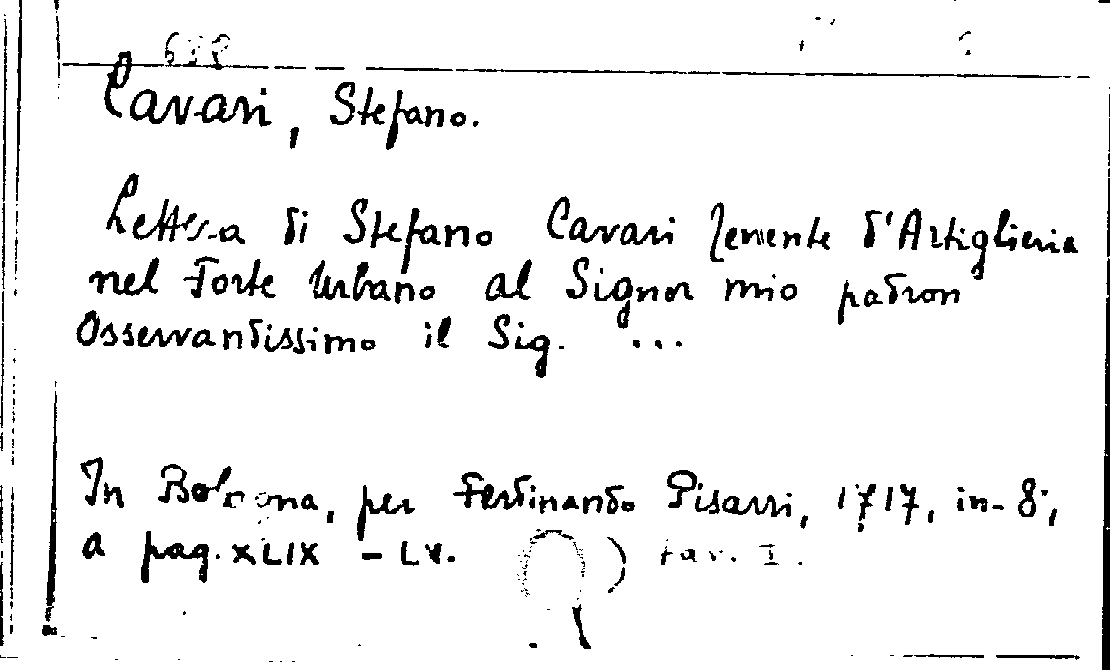 Cavari, Stefano.
Lettera di Stefano Cavari Tenente d'Artiglieria
nel Forte Urbano al Signor mio padron
Osservandissimo il Sig. ...
In Bologna, per Ferdinando Pisarri, 1717, in-8°,
a pag. XLIX - LV. ) tav. I.